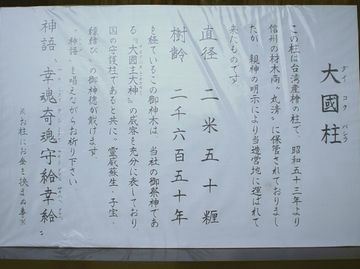 ダイ コク バシラ
大國柱
この柱は台湾産檜の柱で、昭和五十三年より
信州の材木商〝丸清〟に保管されておりまし
たが、親神の明示により当造営地に運ばれて
来たものです
直径 二米五十糎
樹齢 二千六百五十年
を経ているこの御神木は、当社の御祭神であ
る〝大国主大神〟の威容を充分に表しており
国の守護柱であると共に、霊威蘇生・子宝・
縁結びの御神徳が戴けます
〝神語〟を唱えながらお祈り下さい
神語〝幸魂奇魂守給幸給〟
※お柱にお金を挟まぬ事※